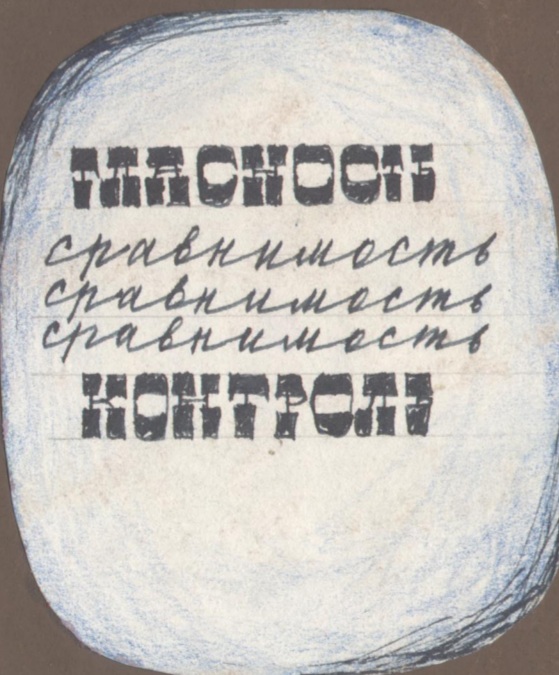 ГЛАСНОСТЬ
сравнимость
сравнимость
сравнимость
КОНТРОЛЬ